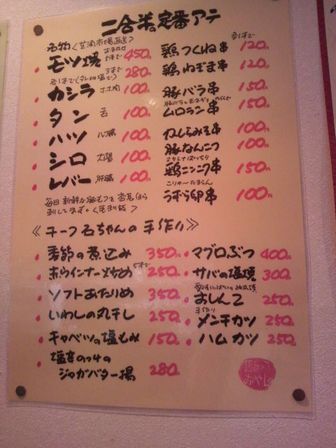 二合半定番アテ
名物
モツ焼 450
280
カシラ 100
タン 100
ハツ 100
シロ 大腸 100
レバー 肝臓 100
毎日
鶏つくね串 120
鶏ねぎま串 120
豚バラ串 150
ムロラン串 150
ねじりみそ串 100
豚なんこつ 100
鶏ニンニク串 150
うずら卵串 100
《チーフ石ちゃんの手作り》
・季節の煮込み 350
・赤ウインナー 250
・ソフトあたりめ 350
・いわしの丸干し 250
・キャベツの塩もみ 150
・塩辛のっけの
ジャガバター揚 280
・マグロぶつ 400
・サバの塩焼 300
・おしんこ 250
手作り
・メンチカツ 250
・ハムカツ 250